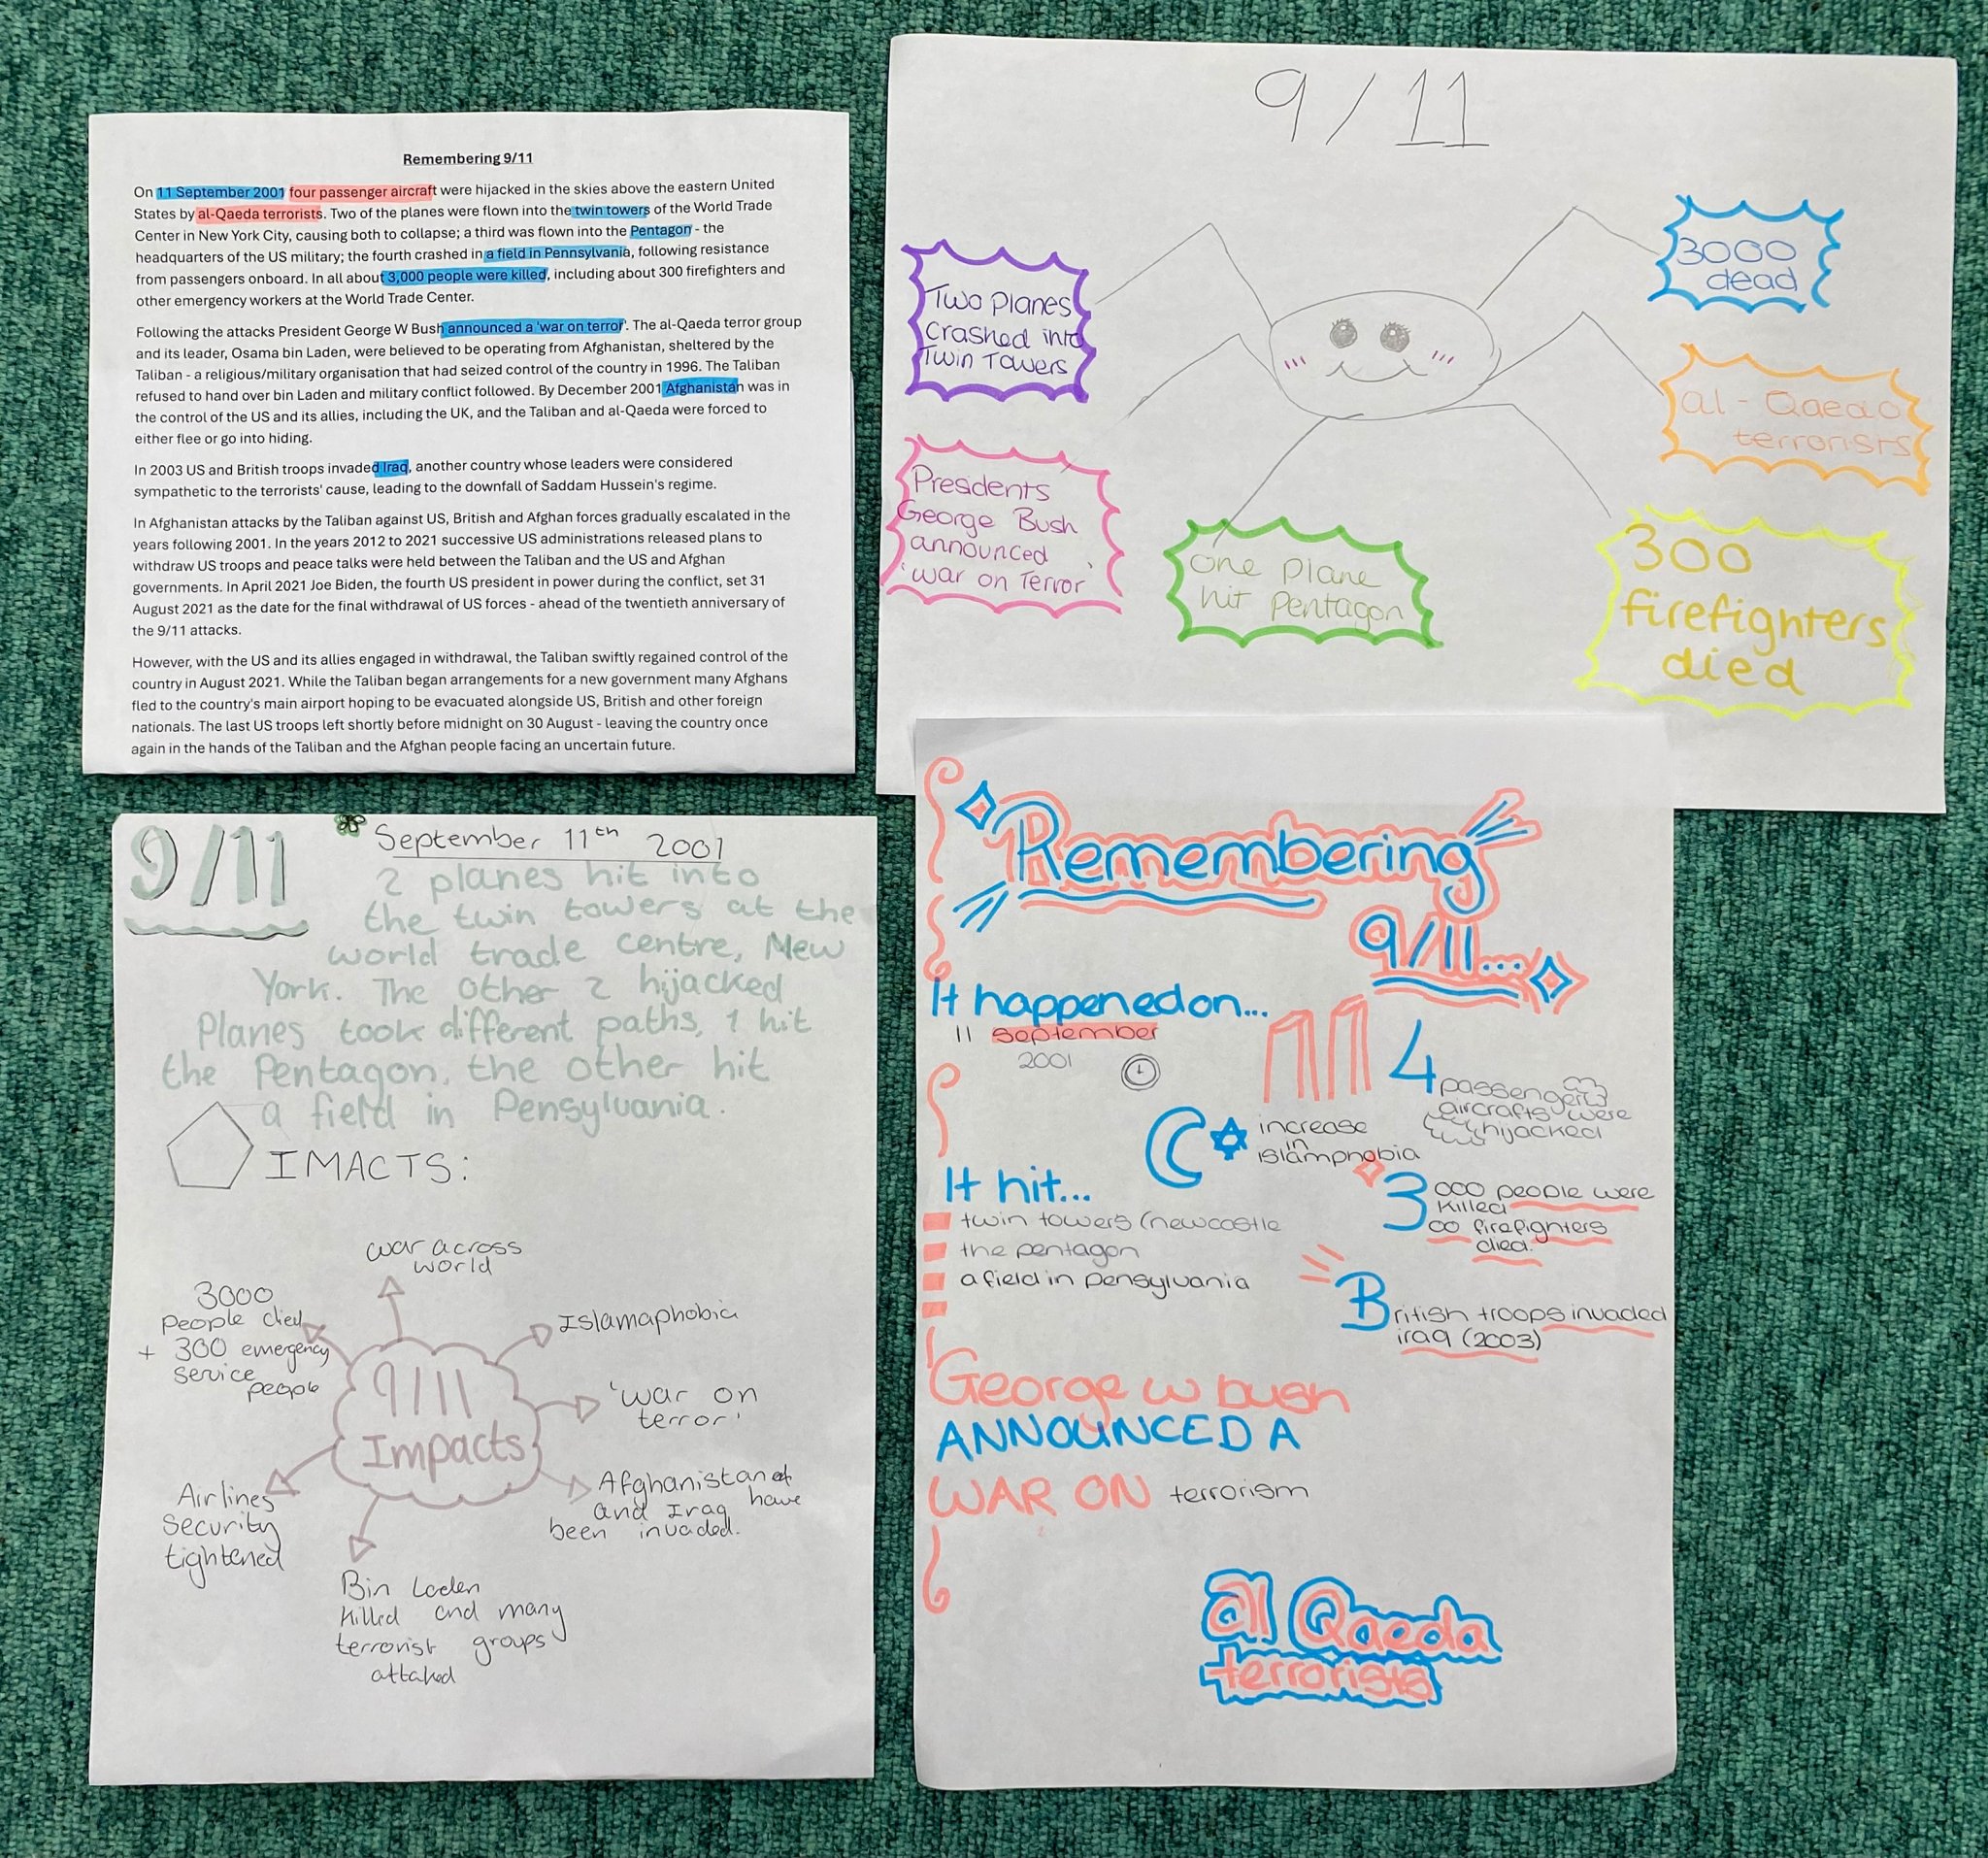 Remembering 9/11
On 11 September 2001 four passenger aircraft were hijacked in the skies above the eastern United
States by al-Qaeda terrorists. Two of the planes were flown into the twin towers of the World Trade
Center in New York City, causing both to collapse; a third was flown into the Pentagon - the
headquarters of the US military; the fourth crashed in a field in Pennsylvania, following resistance
from passengers onboard. In all about 3,000 people were killed, including about 300 firefighters and
other emergency workers at the World Trade Center.
Following the attacks President George W Bush announced a 'war on terror'. The al-Qaeda terror group
and its leader, Osama bin Laden, were believed to be operating from Afghanistan, sheltered by the
Taliban - a religious/military organisation that had seized control of the country in 1996. The Taliban
refused to hand over bin Laden and military conflict followed. By December 2001 Afghanistan was in
the control of the US and its allies, including the UK, and the Taliban and al-Qaeda were forced to
either flee or go into hiding.
In 2003 US and British troops invaded Iraq, another country whose leaders were considered
sympathetic to the terrorists' cause, leading to the downfall of Saddam Hussein's regime.
In Afghanistan attacks by the Taliban against US, British and Afghan forces gradually escalated in the
years following 2001. In the years 2012 to 2021 successive US administrations released plans to
withdraw US troops and peace talks were held between the Taliban and the US and Afghan
governments. In April 2021 Joe Biden, the fourth US president in power during the conflict, set 31
August 2021 as the date for the final withdrawal of US forces - ahead of the twentieth anniversary of
the 9/11 attacks.
However, with the US and its allies engaged in withdrawal, the Taliban swiftly regained control of the
country in August 2021. While the Taliban began arrangements for a new government many Afghans
fled to the country's main airport hoping to be evacuated alongside US, British and other foreign
nationals. The last US troops left shortly before midnight on 30 August - leaving the country once
again in the hands of the Taliban and the Afghan people facing an uncertain future.
9/11
Two Planes
crashed into
Twin Towers
Presidents
George Bush
announced
'war on Terror'
one plane
hit Pentagon
3000
dead
al-Qaeda
terrorists
300
firefighters
died
9/11
September 11th 2001
2 planes hit into
the twin towers at the
world trade centre, New
York. The other 2 hijacked
Planes took different paths, 1 hit
the Pentagon, the other hit
a field in Pensylvania.
IMACTS:
war across
world
3000
People died
+ 300 emergency
service
people
Islamaphobia
9/11
Impacts
'war on
terror'
Airlines
security
tightened
Afghanistan
and Iraq have
been invaded.
Bin Laden
killed and many
terrorist groups
attaked
Remembering
9/11...
It happened on...
11 September
2001
4 passenger
aircrafts were
hijacked
increase
in
islamphobia
It hit...
twin towers (newcastle
the pentagon
a field in pensylvania
3000 people were
killed
00 firefighters
died.
British troops invaded
iraq (2003)
George w bush
ANNOUNCED A
WAR ON terrorism
al Qaeda
terrorists